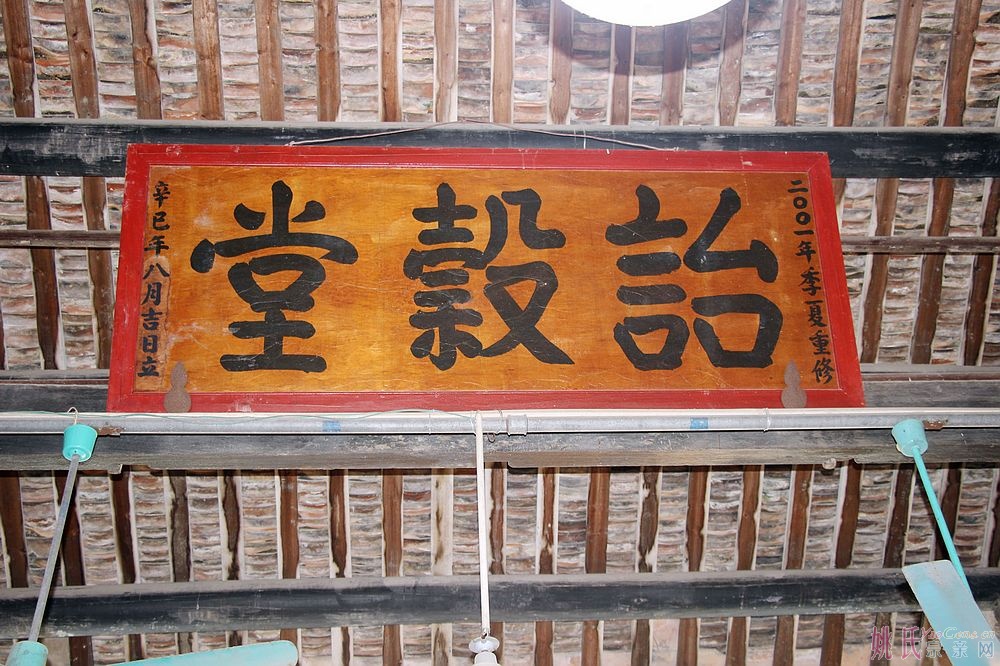 二〇〇一年季夏重修
詒穀堂
辛巳年八月吉日立
姚氏